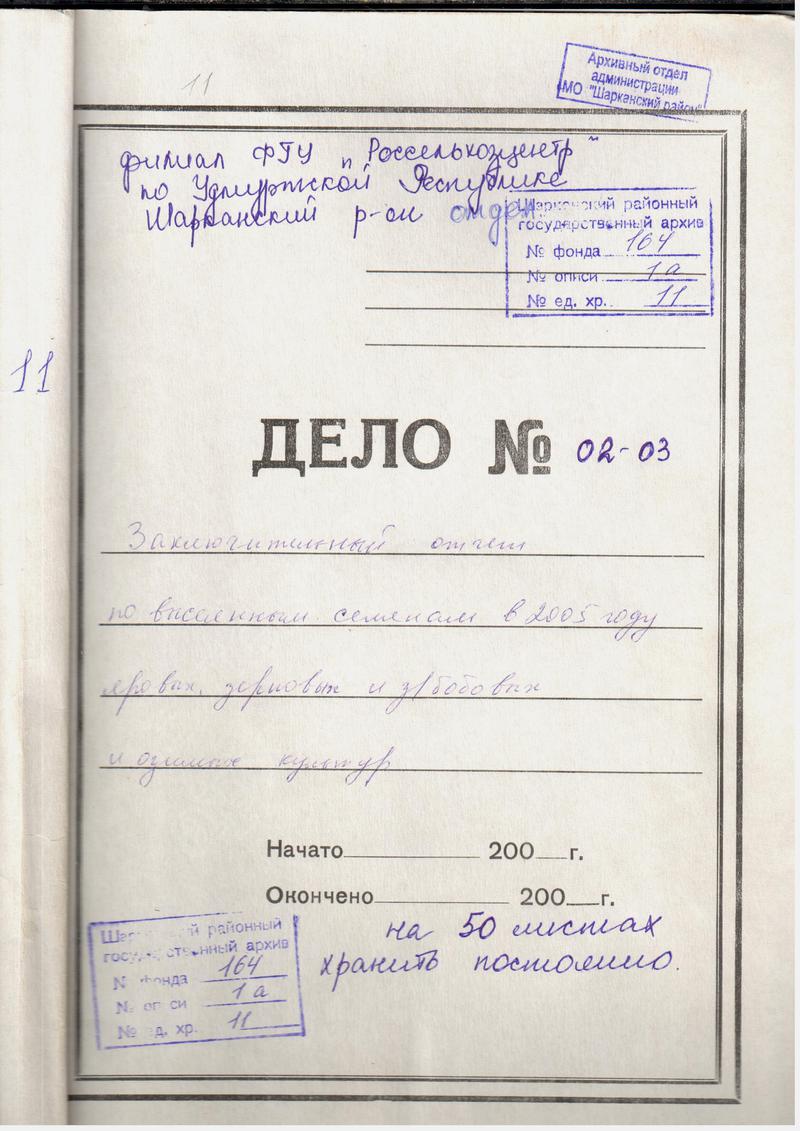 11
Архивный отдел
администрации
МО "Шарканский район"
филиал ФГУ „Россельхозцентр"
по Удмуртской Республике
Шарканский р-он отдел
Шарканский районный
государственный архив
№ фонда 164
№ описи 1а
№ ед. хр. 11
11
ДЕЛО № 02-03
Заключительный отчет
по высеянным семенам в 2005 году
яровых, зерновых и з/бобовых
и озимых культур
Начато 200 г.
Окончено 200 г.
на 50 листах
хранить постоянно.
Шарканский районный
государственный архив
№ фонда 164
№ описи 1а
№ ед. хр. 11